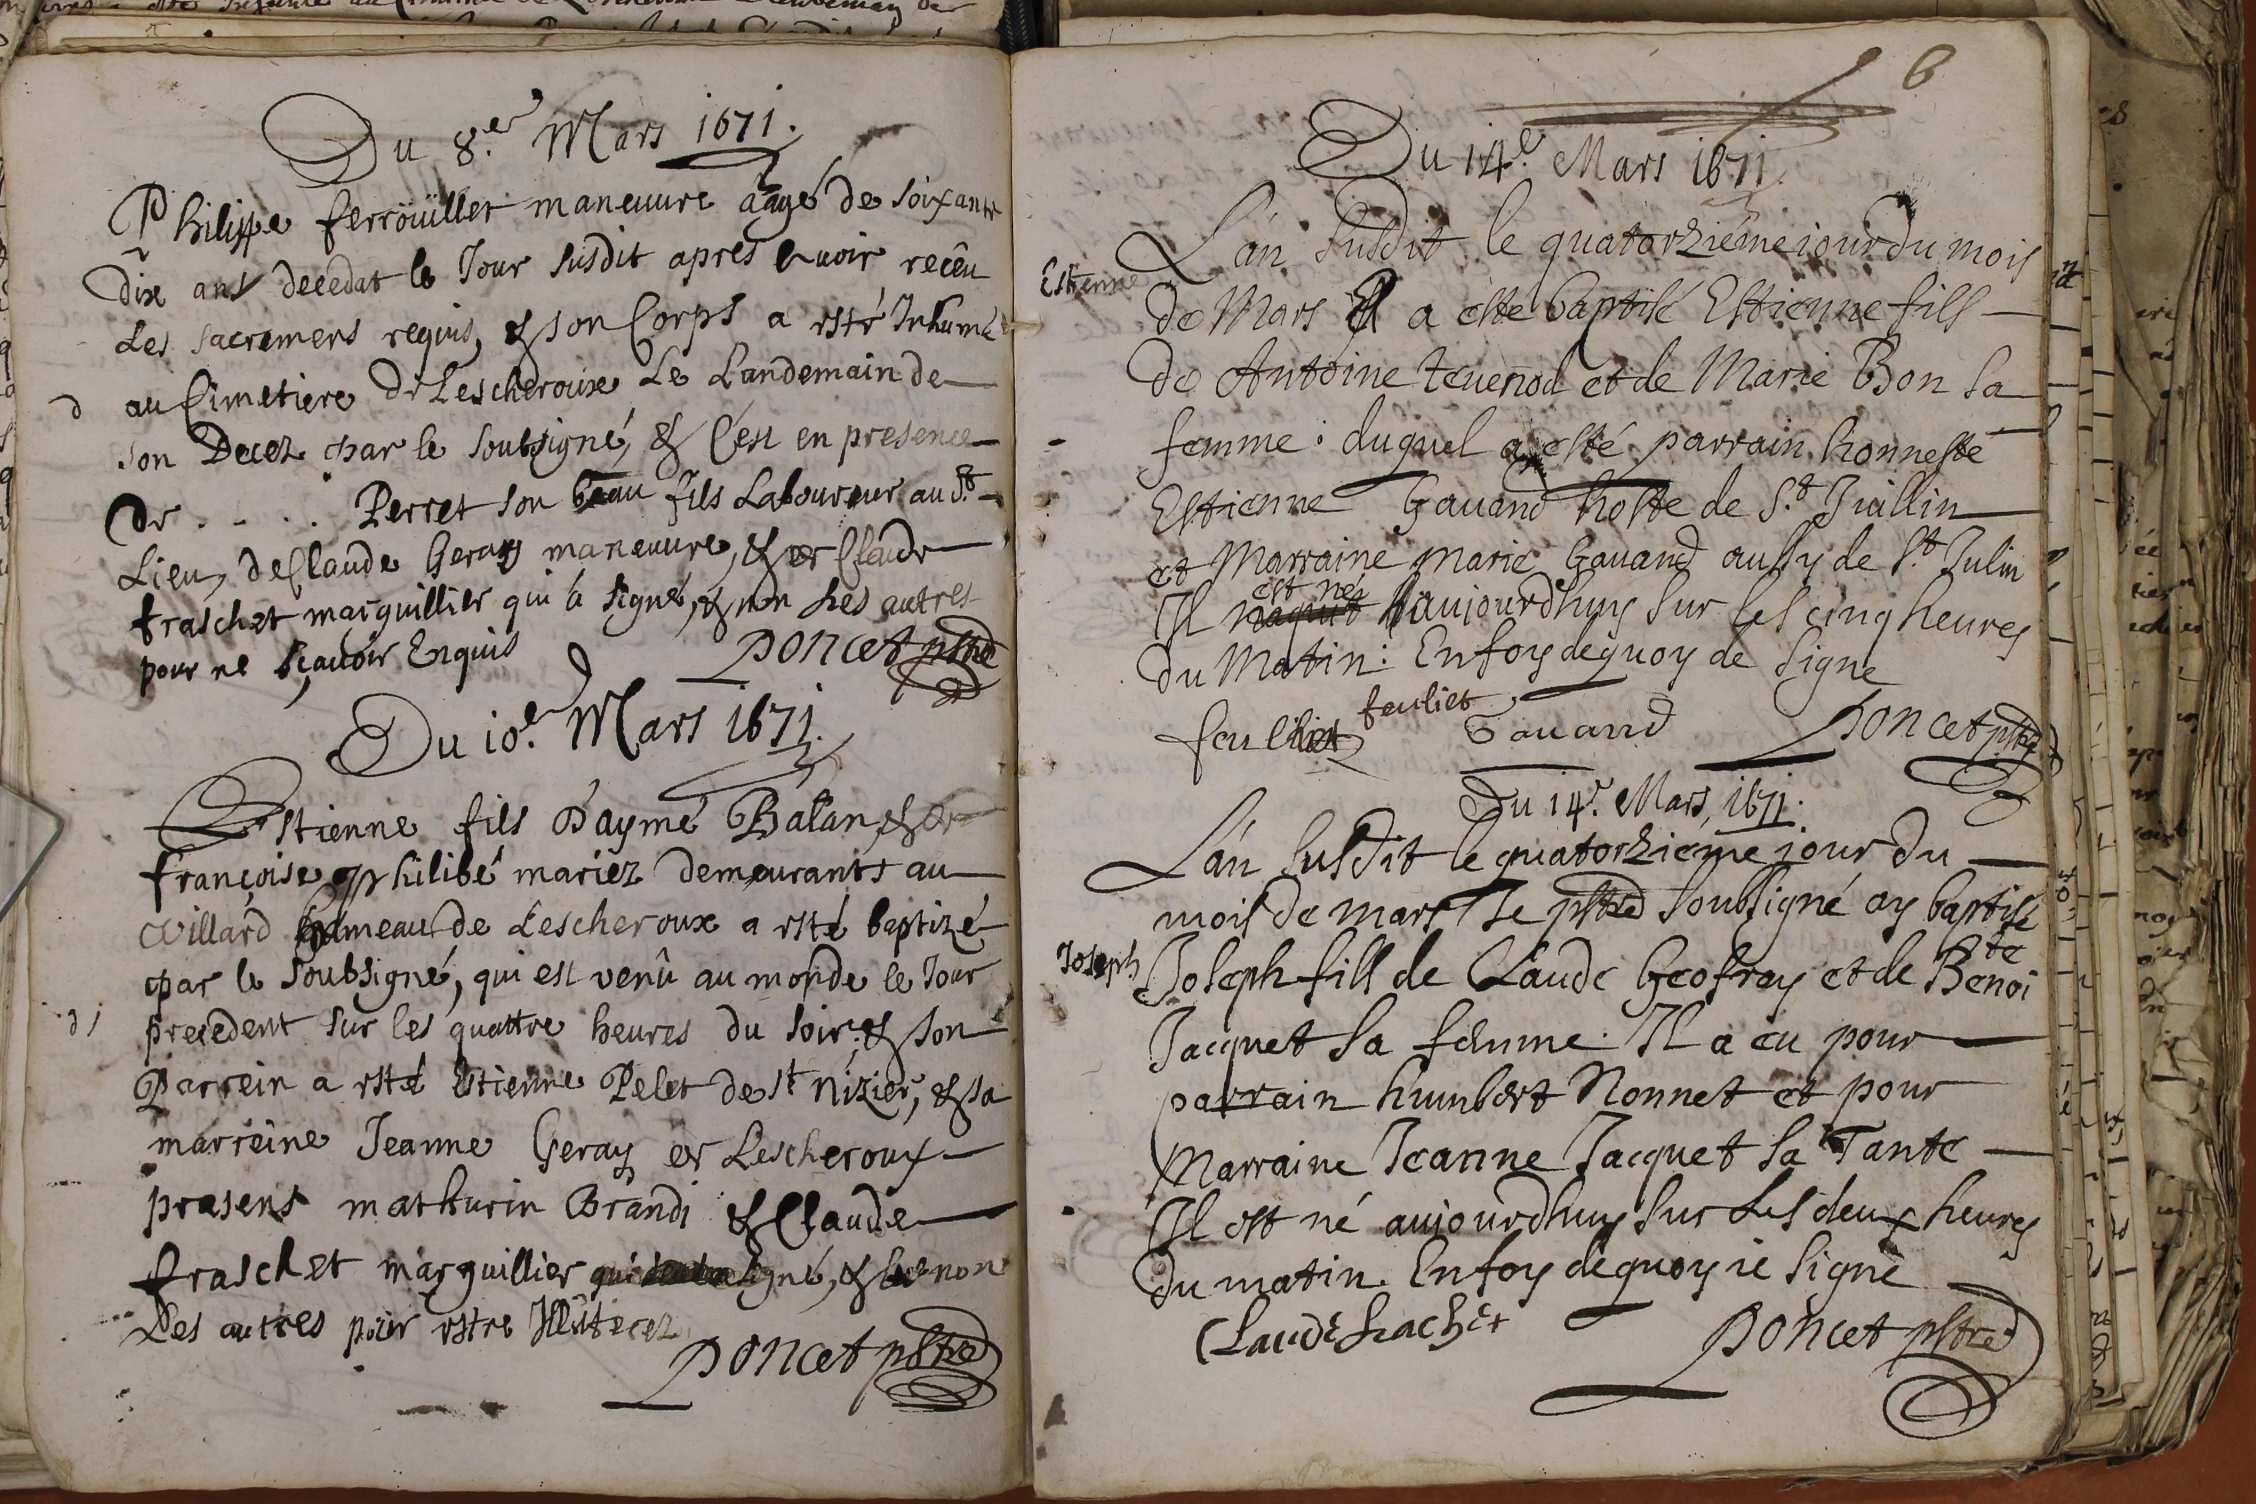 Du 8.e Mars 1671.
Philippe ferroüillet maneuure aagé de soixante
dix ans decedat le Jour susdit apres auoir recêu
Les sacremens requis, & son Corps a esté Inhumé
au Cimetiere de Lescheroux Le Landemain de
son Decez par le soubsigné, & C'est en presence
de . . . . Perret son beau fils Laboureur au st.
Lieu, de Claude Geray maneuure, & de Claude
fraschet marguillier qui à signé, & non les autres
pour ne sçauoir Enquis
Poncet pstre
Du 10.e Mars 1671.
Estienne fils d'aymé Balan, & de
françoise philibé mariez demeurants au
Villard hameau de Lescheroux a esté baptizé
par le soubsigné, qui est venû au monde le Jour
precedent sur les quattre heures du soir. & son
Parrein a esté Estienne Pelet de st Nizier, & sa
marreine Jeanne Geray de Lescheroux
presens mathurin Brandi & Claude
fraschet marguillier qui signé, & non
Les autres pour estre Illiterez
Poncet pstre
6
Du 14.e Mars 1671.
L'an susdit le quatorziéme iour du mois
Estienne
de Mars a esté baptisé Estienne fils
de Antoine teuenod et de Marie Bon sa
femme : duquel a esté parrain honneste
Estienne Gauand hoste de St. Juillin
et Marraine marie Gauand aussy de St. Julin
est né
Il naquit aujourdhuy sur les cinq heures
du Matin : En foy dequoy de signe
feuliet
feulliet Gauand Poncet pstre
Du 14.e Mars, 1671.
L'an susdit le quatorziéme jour du
mois de mars Je pstre soubsigné ay baptisé
te
Joseph
Joseph fils de Claude Geofray et de Benoi
Jacquet sa femme. Il a eu pour
parrain humbert Nonnet et pour
Marraine Jeanne Jacquet sa Tante
Il est né aujourdhuy sur Les deux heures
du matin. En foy dequoy ie signe
Claude frachet Poncet pstre